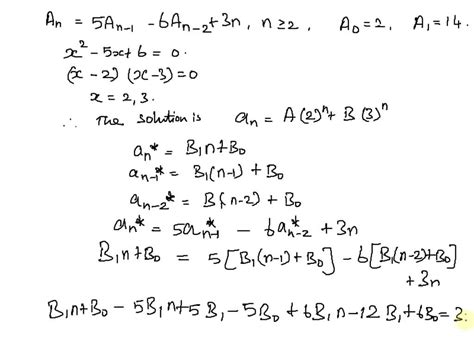 An = 5An-1 - 6An-2 + 3n, n ≥ 2, A0 = 2, A1 = 14.
x² - 5x + 6 = 0.
(x - 2) (x - 3) = 0
x = 2, 3.
∴ The solution is an = A(2)^n + B(3)^n
an* = B1n + B0
an-1* = B1(n-1) + B0
an-2* = B1(n-2) + B0
an* = 5an-1* - 6an-2* + 3n
B1n + B0 = 5[B1(n-1) + B0] - 6[B1(n-2) + B0]
+ 3n
B1n + B0 - 5B1n + 5B1 - 5B0 + 6B1n - 12B1 + 6B0 = 3